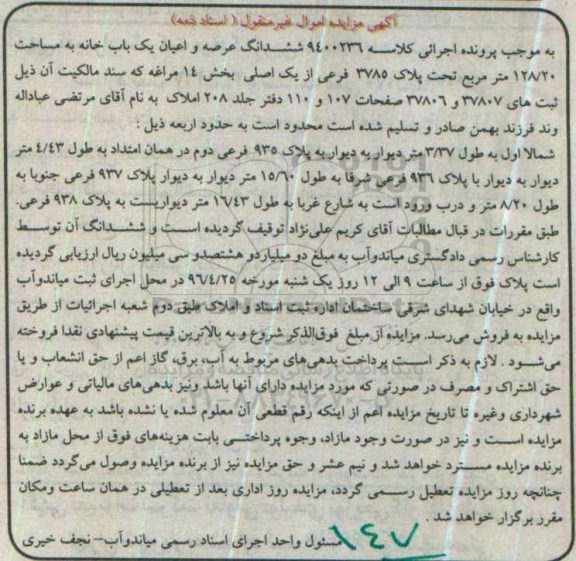 آگهی مزایده اموال غیرمنقول ( اسناد ذمه)
به موجب پرونده اجرائی کلاسه ۹۴۰۰۲۳۶ ششدانگ عرصه و اعیان یک باب خانه به مساحت
۱۲۸/۲۰ متر مربع تحت پلاک ۳۷۸۵ فرعی از یک اصلی بخش ۱۴ مراغه که سند مالکیت آن ذیل
ثبت های ۳۷۸۰۷ و ۳۷۸۰۶ صفحات ۱۰۷ و ۱۱۰ دفتر جلد ۲۰۸ املاک به نام آقای مرتضی عباداله
وند فرزند بهمن صادر و تسلیم شده است محدود است به حدود اربعه ذیل :
شمالا اول به طول ۳/۳۷ متر دیوار به دیوار به پلاک ۹۳۵ فرعی دوم در همان امتداد به طول ۴/۴۳ متر
دیوار به دیوار با پلاک ۹۳۶ فرعی شرقا به طول ۱۵/۶۰ متر دیوار به دیوار پلاک ۹۳۷ فرعی جنوبا به
طول ۸/۲۰ متر و درب ورود است به شارع غربا به طول ۱۶/۴۳ متر دیواریست به پلاک ۹۳۸ فرعی.
طبق مقررات در قبال مطالبات آقای کریم علی‌نژاد توقیف گردیده است و ششدانگ آن توسط
کارشناس رسمی دادگستری میاندوآب به مبلغ دو میلیاردو هشتصدو سی میلیون ریال ارزیابی گردیده
است پلاک فوق از ساعت ۹ الی ۱۲ روز یک شنبه مورخه ۹۶/۴/۲۵ در محل اجرای ثبت میاندوآب
واقع در خیابان شهدای شرقی ساختمان اداره ثبت اسناد و املاک طبق دوم شعبه اجرائیات از طریق
مزایده به فروش می‌رسد. مزایده از مبلغ فوق‌الذکر شروع و به بالاترین قیمت پیشنهادی نقدا فروخته
می‌شود . لازم به ذکر است پرداخت بدهی‌های مربوط به آب، برق، گاز اعم از حق انشعاب و یا
حق اشتراک و مصرف در صورتی که مورد مزایده دارای آنها باشد ونیز بدهی‌های مالیاتی و عوارض
شهرداری وغیره تا تاریخ مزایده اعم از اینکه رقم قطعی آن معلوم شده یا نشده باشد به عهده برنده
مزایده است و نیز در صورت وجود مازاد، وجوه پرداختی بابت هزینه‌های فوق از محل مازاد به
برنده مزایده مسترد خواهد شد و نیم عشر و حق مزایده نیز از برنده مزایده وصول می‌گردد ضمنا
چنانچه روز مزایده تعطیل رسمی گردد، مزایده روز اداری بعد از تعطیلی در همان ساعت ومکان
مقرر برگزار خواهد شد .
مسئول واحد اجرای اسناد رسمی میاندوآب– نجف خیری
۱۴۷